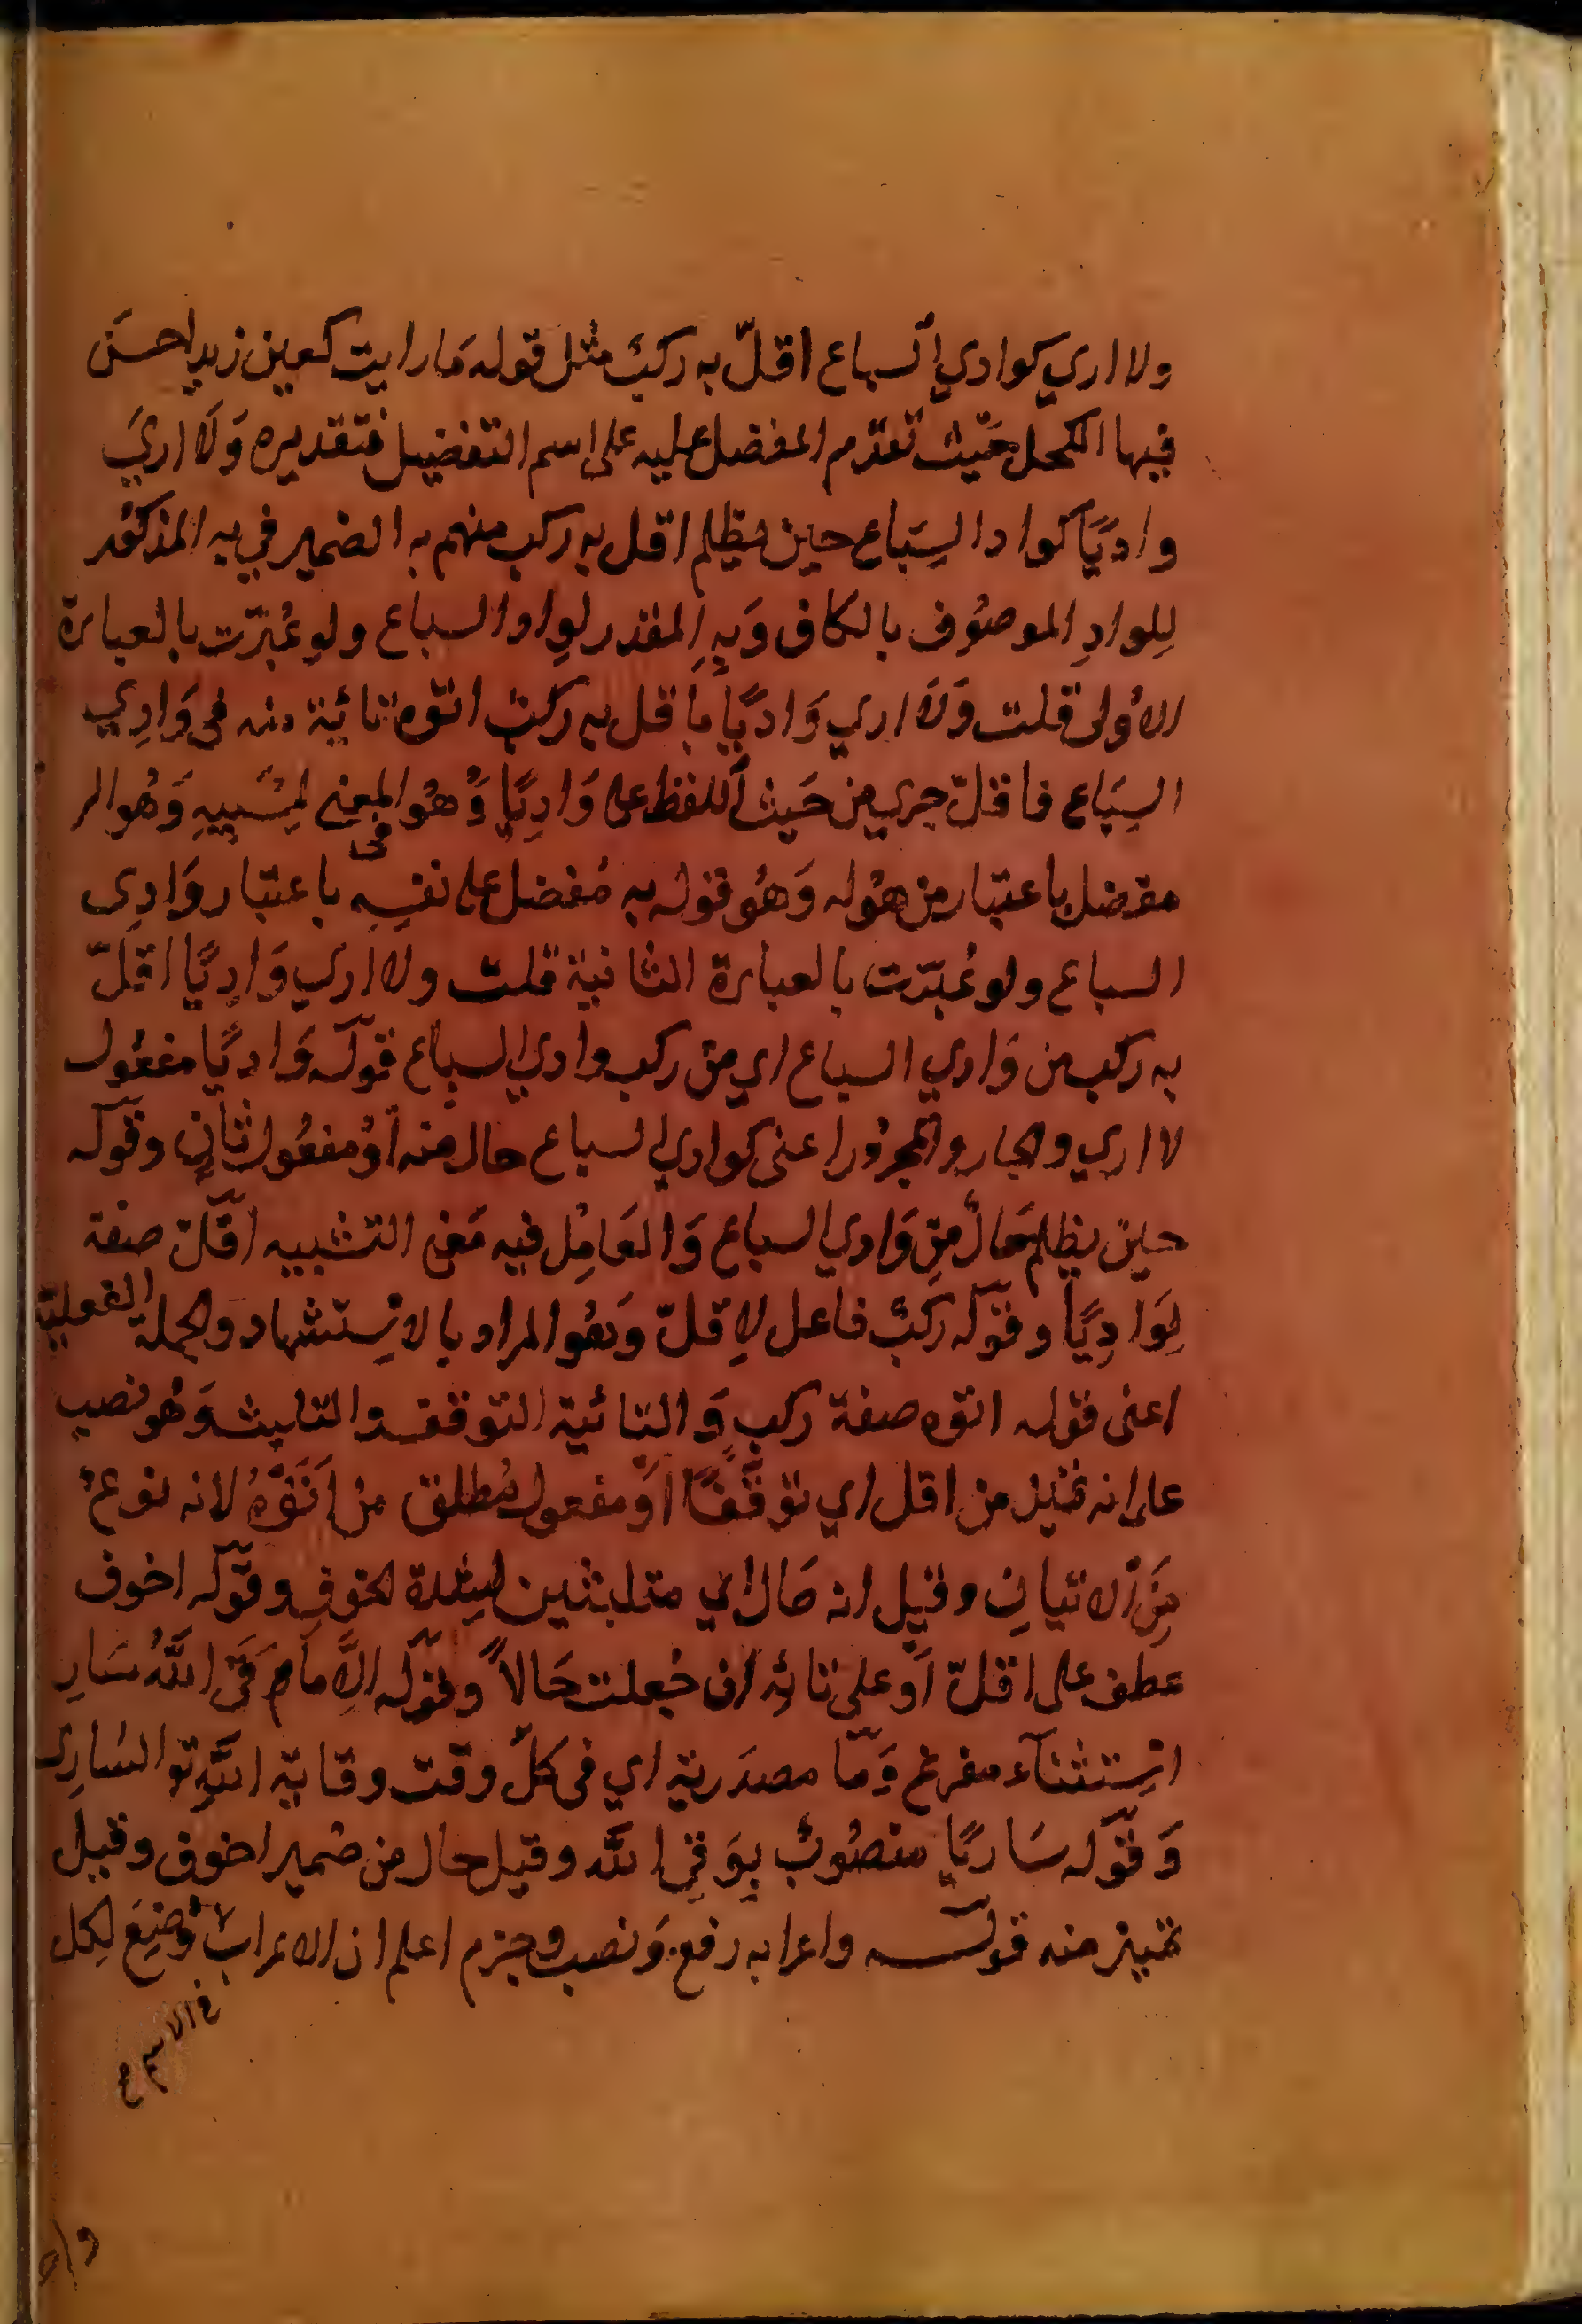 ولا اري كوادي السباع اقلّ به ركبٌ مثل قوله مَا رايت كعين زيد احسَن
فيها الكحل حَيث تقدّم المفضل عليه على اسم التفضيل فتقديره وَلَا اريَ
وادِيًا كواد السِبَاع حين يظلم اقل به ركب منهم به الضمير في به المذكور
لِلوادِ الموصُوف بالكاف وَبِهِ المقدر لِواد السباع ولو عُبِرّت بالعبارة
الاوُلى قلت وَلَا اري وَادِيًا يا قل به ركبٌ اتوه تائية منه فى وَادِي
السِبَاع فاقلّ جري من حَيث اللفظ على وَادِيًا وَهُو فى المعنى لمسَببِهِ وَهُو الر
مفضل باعتبار من هوُله وَهُو قوله به مُفضل على نفسِهِ باعتبار وَادِى
السباع ولو عُبِرّت بالعبارة الثانية قلت ولا اري وَادِيًا اقلّ
به ركب من وَادي السباع اي من ركب وادي السباع قوله وَادِيًا مفعُول
لا اري والجار والمجرُور اعنى كوادي السباع حال منه اوُ مفعُول ثانٍ وقوله
حين يظلم حَالٌ مِن وَادي السباع وَالعَامِل فيه مَعنى التشبيه اقلّ صفة
لِوَادِيًا وقوله ركبٌ فاعل لاِقلّ وَهُو المراد بالاسِتشهاد والجملة الفعلية
اعنى قوله اتوه صفة ركبٍ وَالتائية التوقف والتلبث وَهُو نصب
على انه تمَيِيز من اقل اي توَقّفًا اوَ مفعول مُطلق مِن اَتَوْهُ لانه نوعٌ
مِنَ الاتيانِ وقيل انه حَال اي متلبثين لِشدة الخوفِ وقوله اخوف
عطف على اقلّ اوَ على تائية ان جُعلت حَالاً وقوله الاَّ مَا وَقَى اللَّهُ سَارِ
اسِتثنآء مفرغ وَمَا مصدَرية اي فى كلّ وقت وقاية اللَّهِ تو السَارِى
وَقوله سَارِيًا منصُوبٌ بِوَقىِ اللَّه وقيل حال من ضمير اخوف وقيل
تمييز منه قولـه واعرابه رفع وَنصب وجزم اعلم ان الاعرابَ وُضِعَ لِكل
فى الاسم